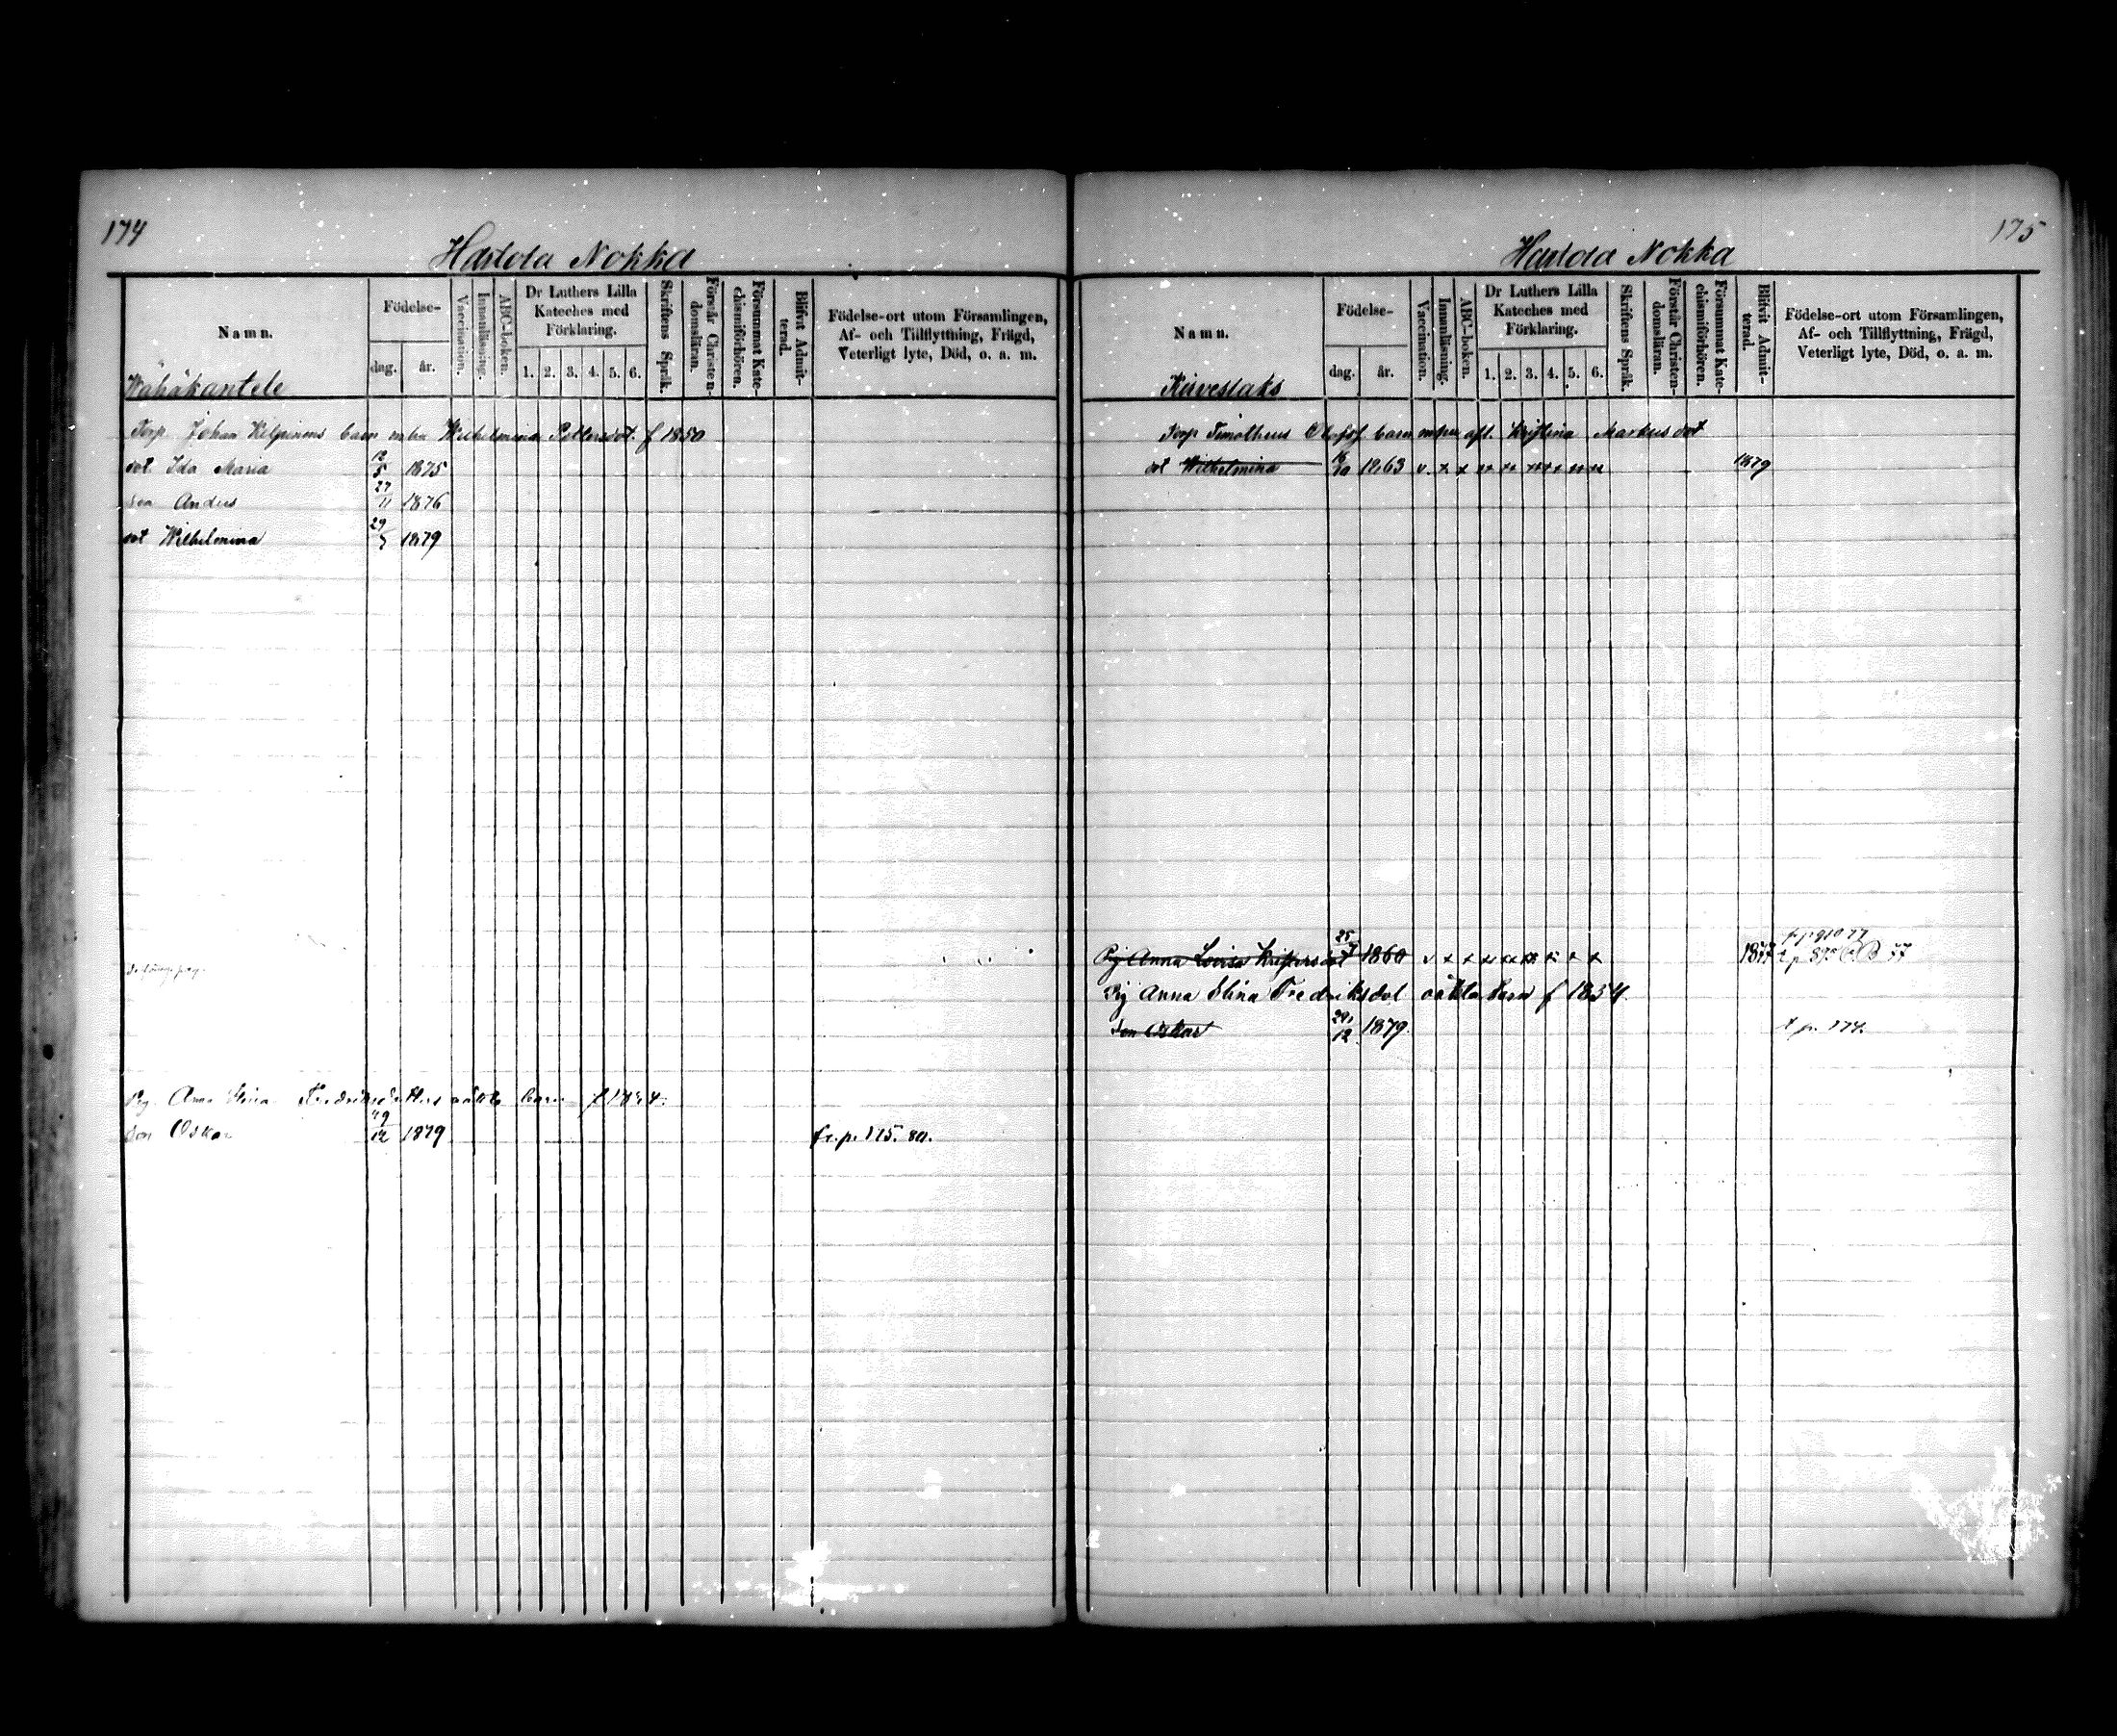 174
Hartola Nokka
Namn.
Födelse-
dag.
år.
Vaccination.
Innanläsning.
ABC-boken.
Dr Luthers Lilla Kateches med Förklaring.
1. 2. 3. 4. 5. 6.
Skriftens Språk.
Förstår Christendomsläran.
Försummat Katechismiförhören.
Blifvit Admitterad.
Födelse-ort utom Församlingen,
Af- och Tillflyttning, Frägd,
Veterligt lyte, Död, o. a. m.
Wähäkantele
Torp. Johan Kilpinens barn m hu Wilhelmina Pettersdot. f 1850
dot. Ida Maria 5 1875
son Anders 27/11 1876
dot Wilhelmina 29 1879
Pig. Anna Stina Fredriksdotters oäkta barn
son Oskar 29/12 1879 fr. p. 175. 80.
175
Hartola Nokka
Namn.
Födelse-
dag.
år.
Vaccination.
Innanläsning.
ABC-boken.
Dr Luthers Lilla Kateches med Förklaring.
1. 2. 3. 4. 5. 6.
Skriftens Språk.
Förstår Christendomsläran.
Försummat Katechismiförhören.
Blifvit Admitterad.
Födelse-ort utom Församlingen,
Af- och Tillflyttning, Frägd,
Veterligt lyte, Död, o. a. m.
Torp Timotheus barn m hu afl. Kristina Markusdot
dot Wilhelmina 16/10 1863 v. x x 1879
Pig Anna Lovisa 25/7 1860 v x x 1877
Pig Anna Stina Fredriksdot oäkta barn f 1854.
son Oskar 29/12 1879. t p. 174.